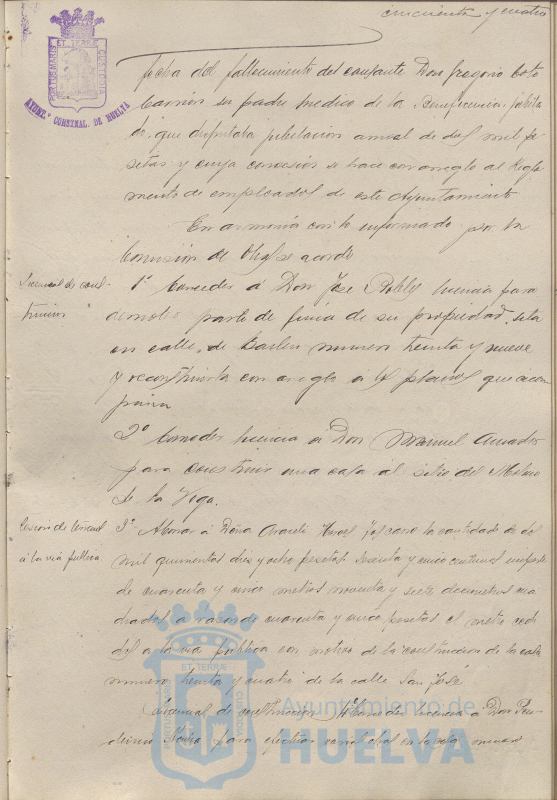 cincuenta y cuatro
PORTUS MARIS ET TERRE CUSTODIA
AYUNT.º CONSTNAL. DE HUELVA
fecha del fallecimiento del causante Don Gregorio Soto
Carrión su padre medico de la Beneficencia jubila
do, que disfrutaba jubilación anual de dos mil pe
setas y cuya concesión se hace con arreglo al Regla
mento de empleados de este Ayuntamiento
En armonía con lo informado por la
Comisión de Obras se acordó
Licencias de cons-
trucción
1º Conceder á Don José Robles licencia para
demoler parte de finca de su propiedad, sita
en calle de Bailen numero treinta y nueve
y reconstruirla con arreglo á los planos que acom
paña
2º Conceder licencia á Don Manuel Amador
para construir una casa al sitio del Molino
de la Vega.
Cesion de terreno
á la via publica.
3º Abonar á Doña Araceli la cantidad de dos
mil quinientas diez y ocho pesetas sesenta y cinco centimos importe
de cuarenta y cinco metros noventa y siete decimetros cua
drados á razon de cuarenta y cinco pesetas el metro
á la via publica con motivo de la construccion de la casa
numero treinta y cuatro de la calle San José
Licencias de construccion 4º Conceder licencia á Don
para ejecutar obras en la casa numero
PORTUS MARIS ET TERRE CUSTODIA
Ayuntamiento de
HUELVA